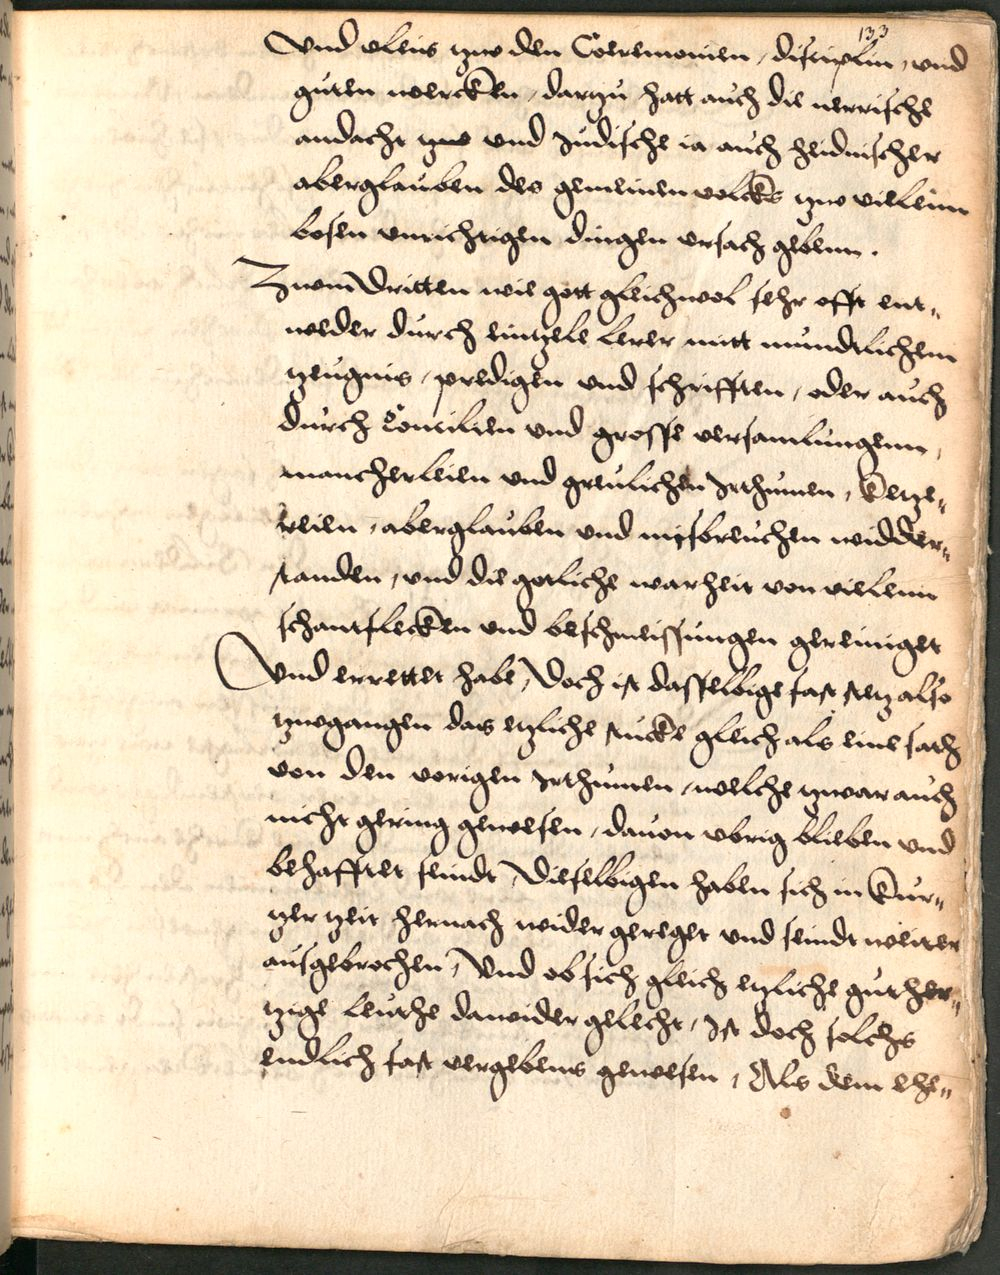 133
Vnd vleis zw den Ceremonien, disciplin, vnd
guten wercken, dartzu hatt auch die nerrische
andacht zw vnd Judische ia auch heidnischer
aberglauben des gemeinen volcks zw vielenn
bosen vnrichtigen dingen vrsach geben.
Zwm Dritten wie gott gleichwol sehr offt ent„
weder durch eintzele lerer mitt mundtlichem
zeugnis, predigen vnd schrifften, oder auch
durch Concilien vnd grosse versamlungenn,
mancherleien vnd greulichen Irthumen, Ketze„
reien, aberglauben vnd misbreuchen widder„
standen, vnd die gotliche warheit von vielenn
schantflecken vnd beschmeissungen gereiniget
Vnd errettet habe, Doch ist dasselbige fast stetz also
zwgangen das etzliche stucke gleich als eine sath
von den vorigen Irthumen, welche zwar auch
nicht gering gewesen, dauon vbrig blieben vnd
behafftet seindt, Dieselbigen haben sich in Kur„
tzer zeit hernach wider gereget vnd seindt weiter
ausgebrochen, Vnd ob sich gleich etzliche guther„
tzige leuthe dawider gelecht, Ist doch solchs
endlich fast vergebens gewesen, Als dem ehe„